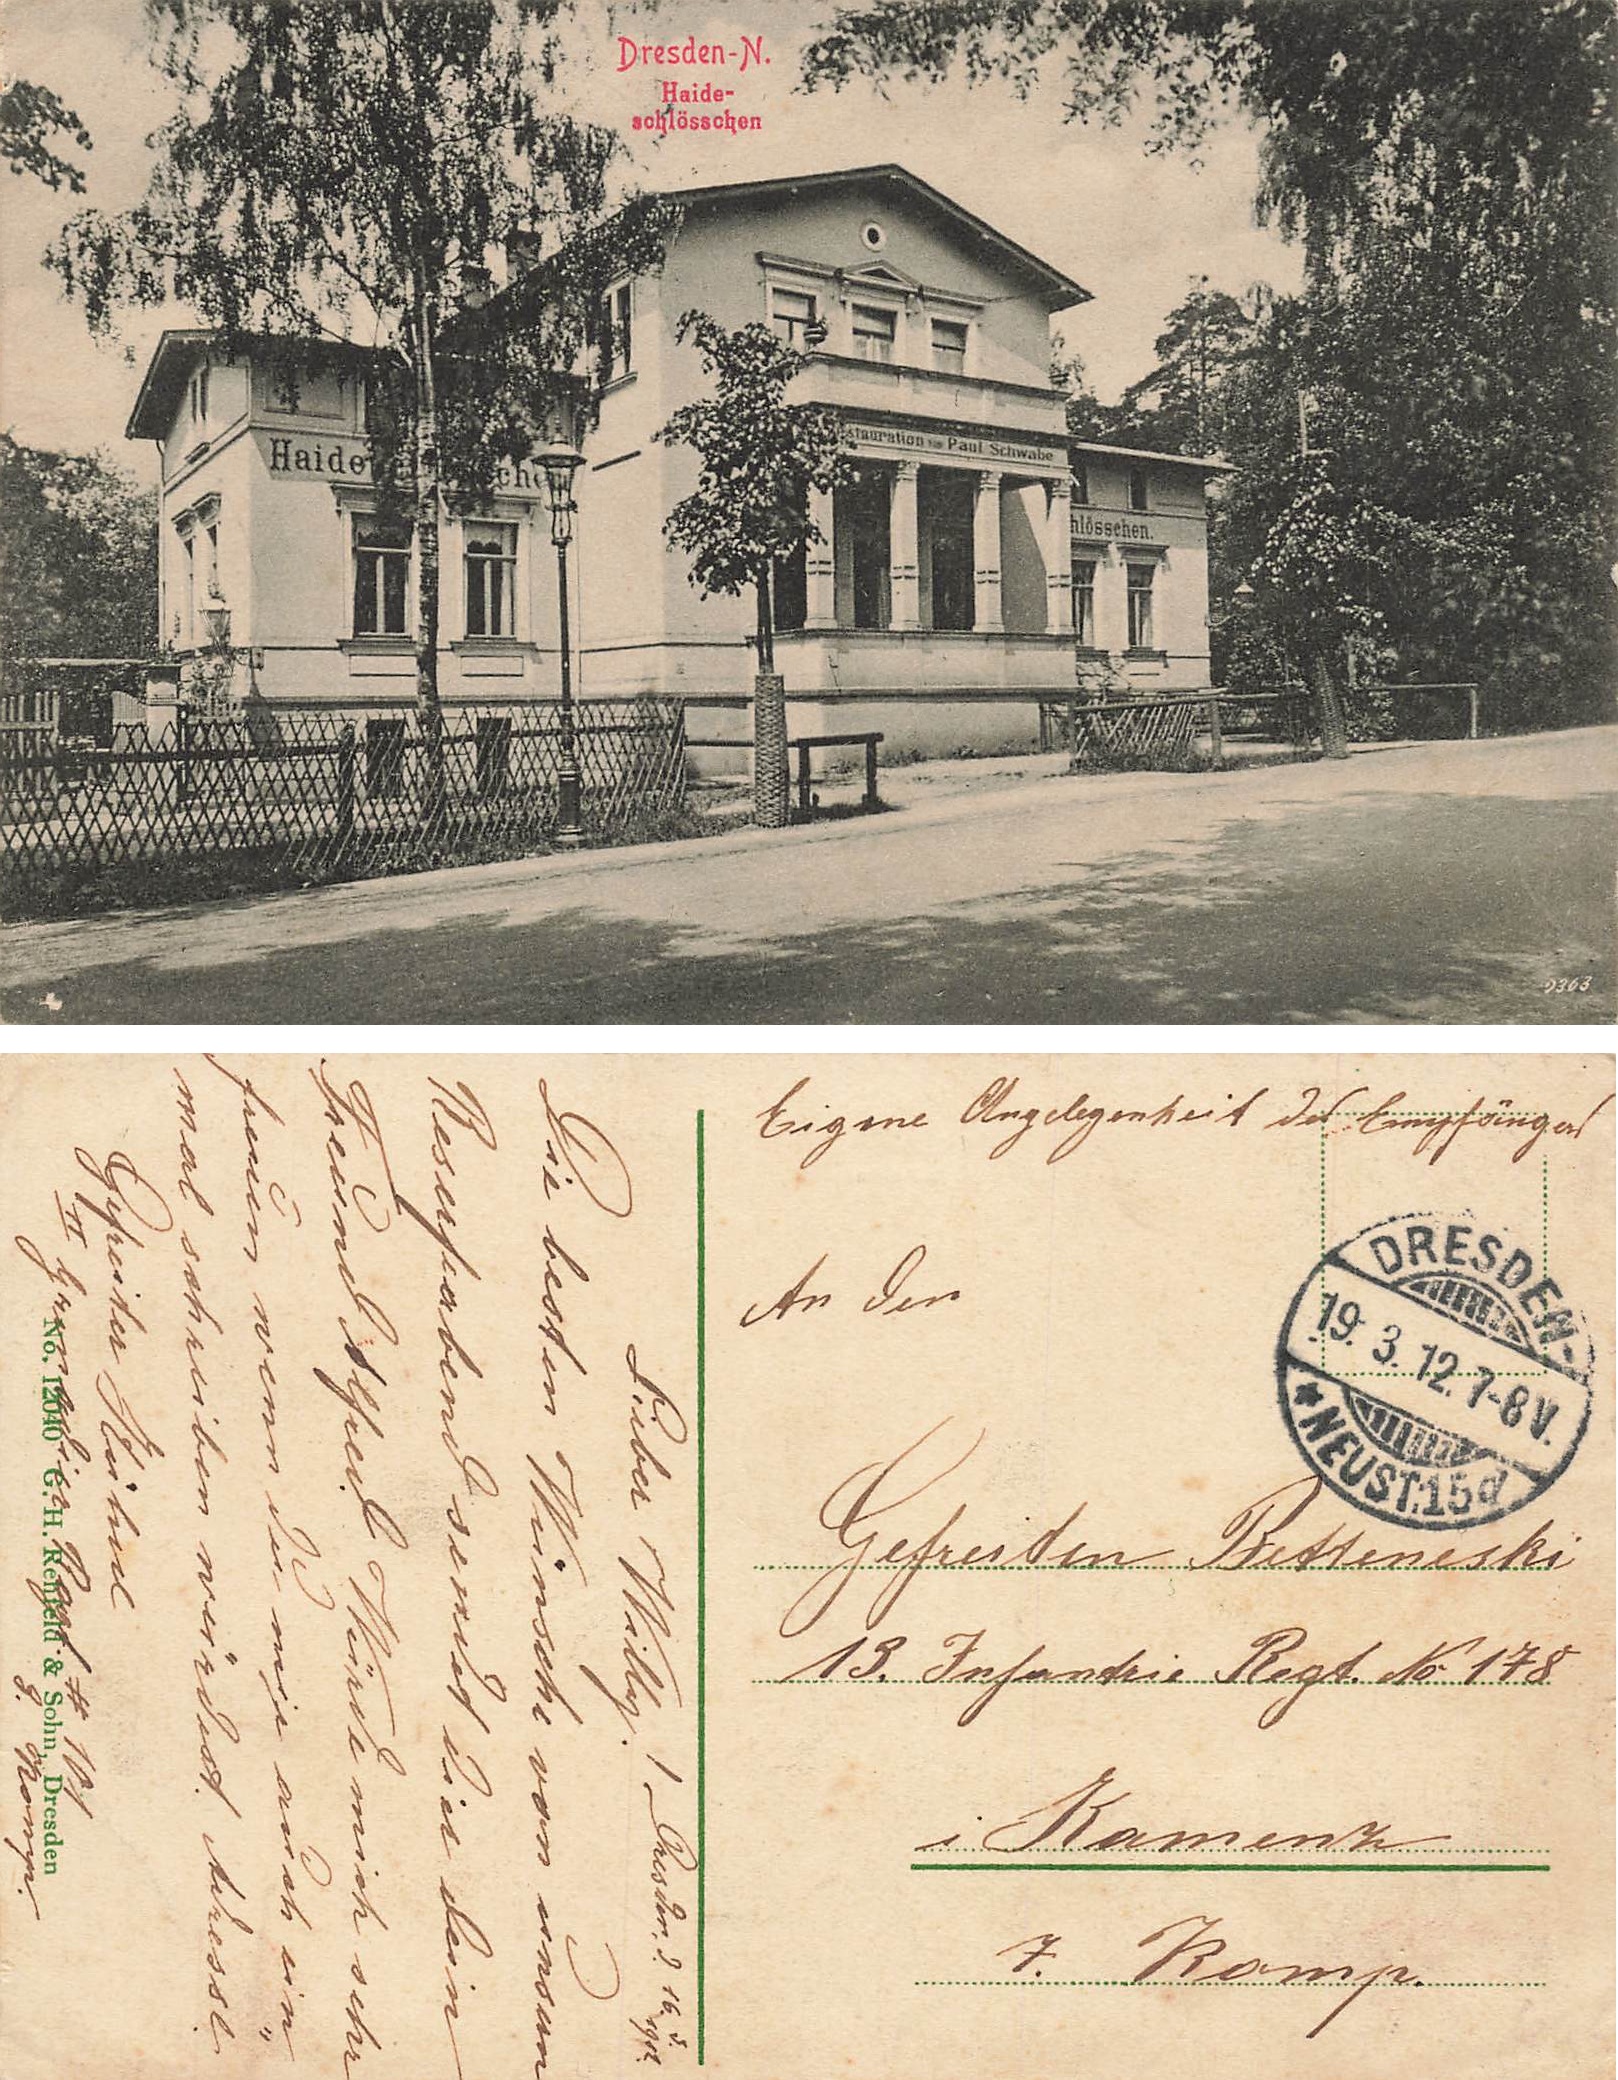 Dresden-N.
Haide-
schlösschen
Haide
che
stauration von Paul Schwabe
hlösschen.
9363
Eigene Angelegenheit des Empfängers
An den
Gefreiten
13. Infantrie Regt. No 178
i Kamenz
7. Komp.
DRESDEN-
19. 3. 12. 7-8 V.
* NEUST. 15 d
Dresden. d. 16. 3. 1912.
Lieber Willy!
Die besten Wünsche von unsern
Reserfabend sendet dir dein
Freund Alfred Würde mich sehr
freuen wenn du mir auch ein"
mal schreiben würdest. Adresse.
Gefreiter
Regt.
Komp.
No. 12040 G. H. Renfeld & Sohn, Dresden